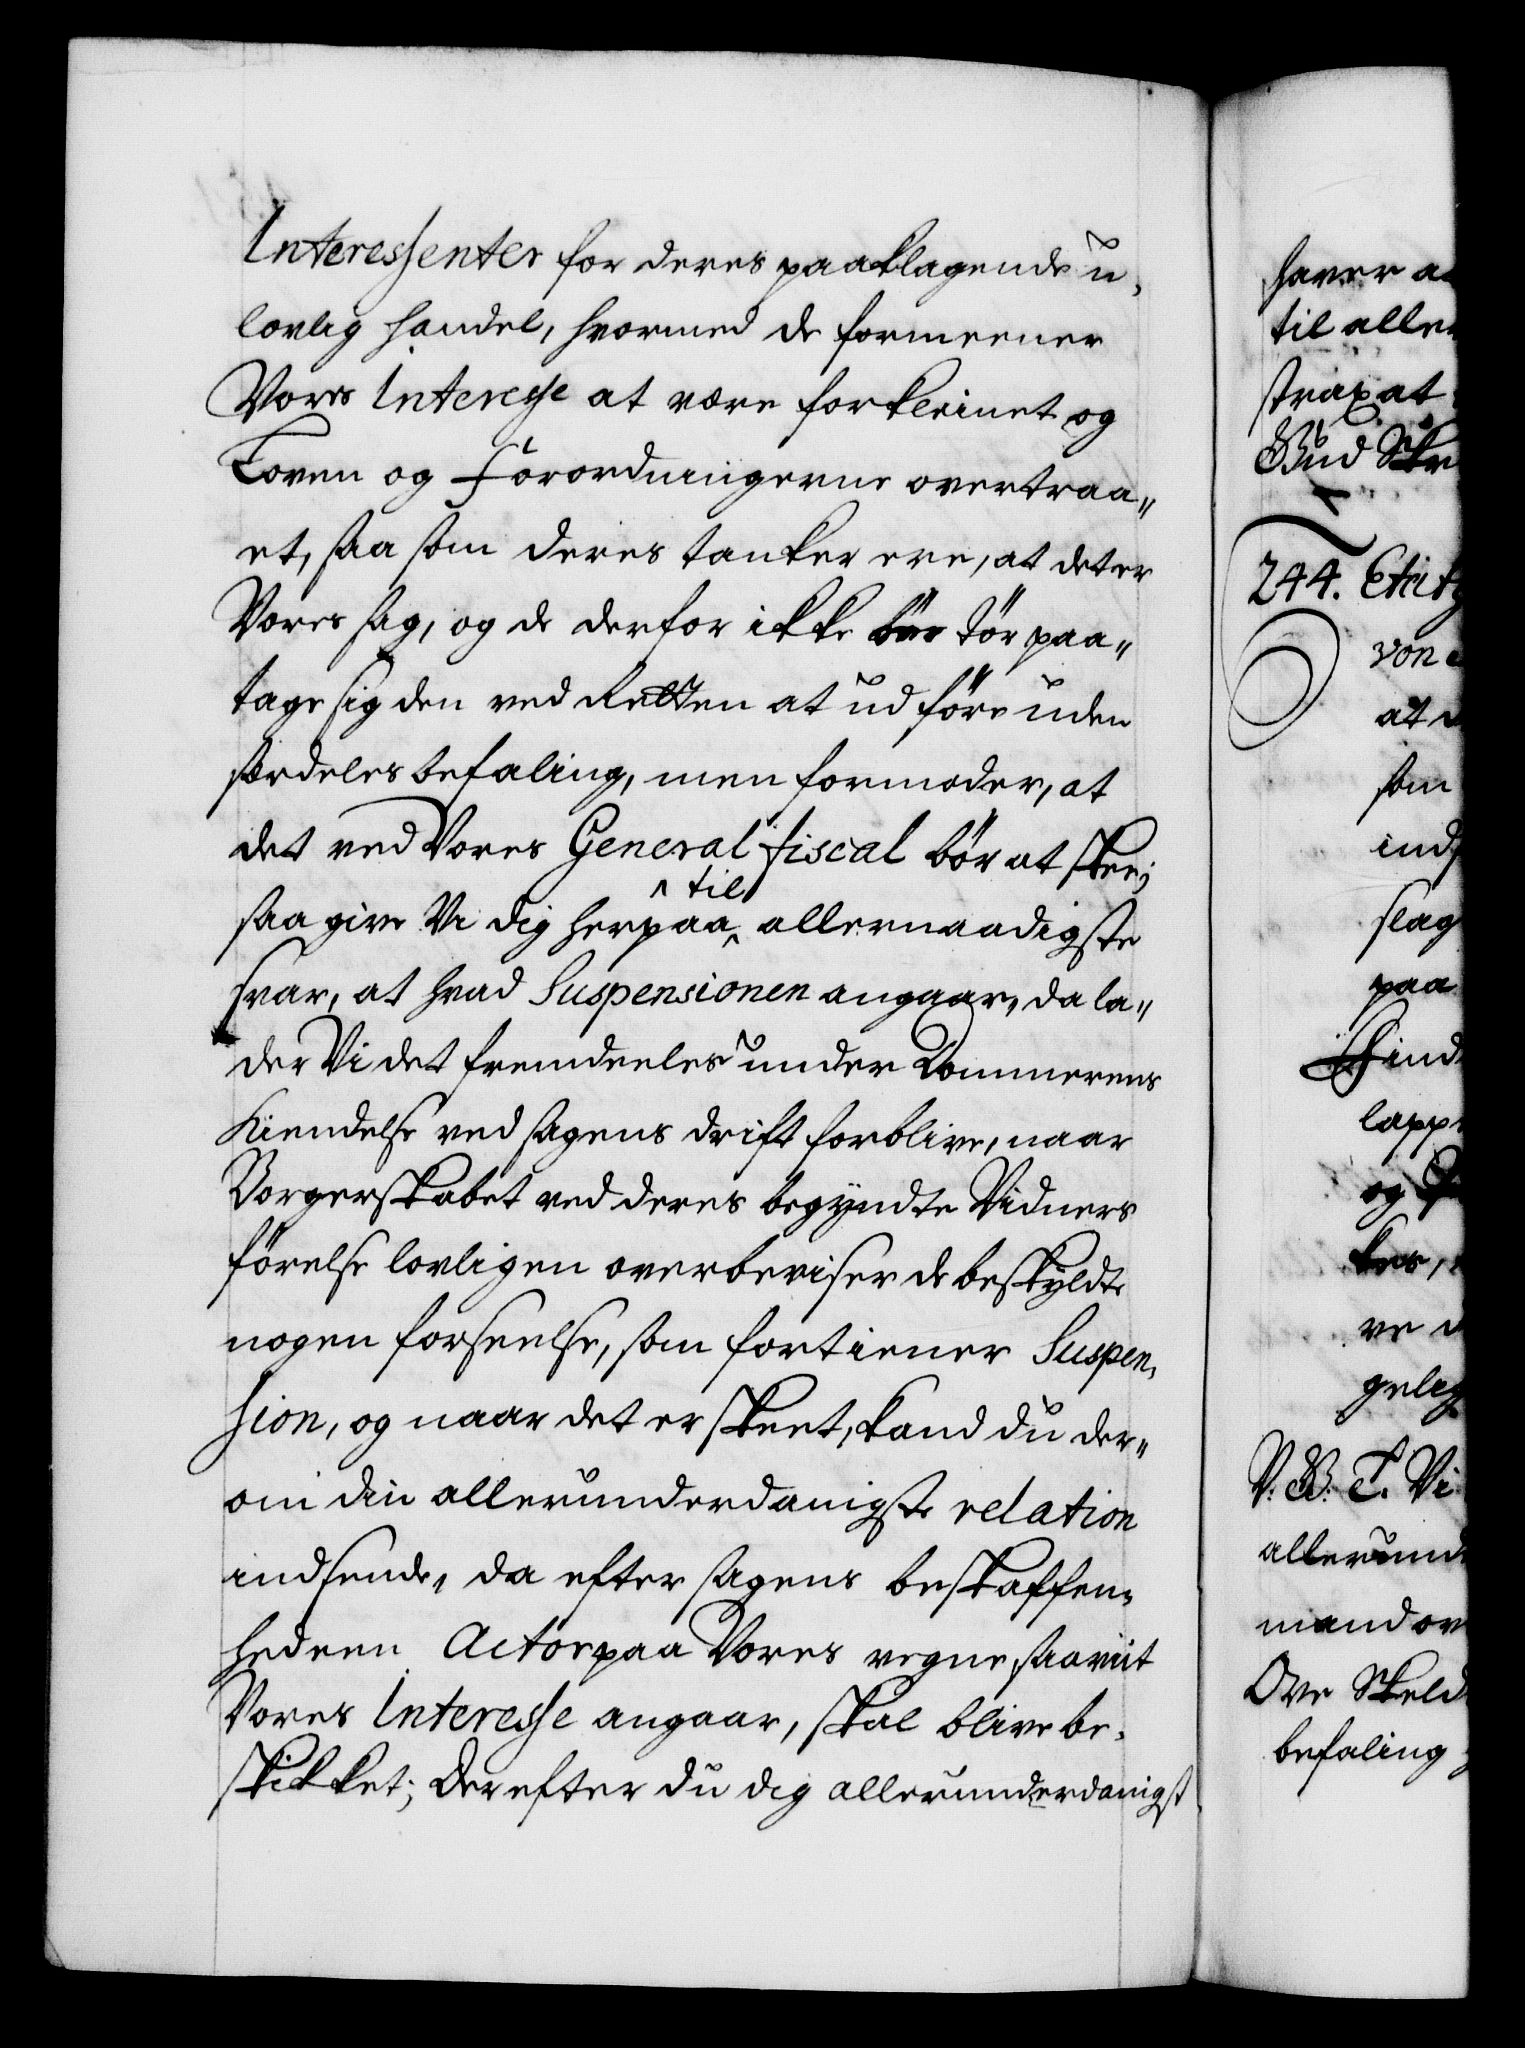 Interessenter for deres paaklagende u-
lovlig handel, hvormed de formeener
Vores Interesse at være forkleinet og
Loven og Forordningerne overtraa-
et, saa som deres tanker ere, at det er
Vores sag, og de derfor ikke tør paa-
tage sig den ved Retten at udføre uden
særdeles befaling, men formoder, at
det ved Vores General fiscal bør at skee;
til
saa give Vi dig herpaa allernaadigste
svar, at hvad Suspensionen angaar, da la-
der Vi det fremdeeles under Dommerens
Kiendelse ved sagens drift forblive, naar
Borgerskabet ved deres begyndte Vidners
førelse lovligen overbeviser de beskyldte
nogen forseelse, som fortiener Suspen-
sion, og naar det er skeet, kand du der-
om din allerunderdanigste relation
indsende, da efter sagens beskaffen-
hed een Actor paa Vores vegne saavit
Vores Interesse angaar, skal blive be-
skikket; Derefter du dig allerunderdanigst
haver a
til aller
strax at
Gud Skr
244.
von
at
som
ind
slag
paa
Find
lapp
og
ve
gelig
V. G. T. Vi
allerund
mand ov
Ove Skeld
befaling